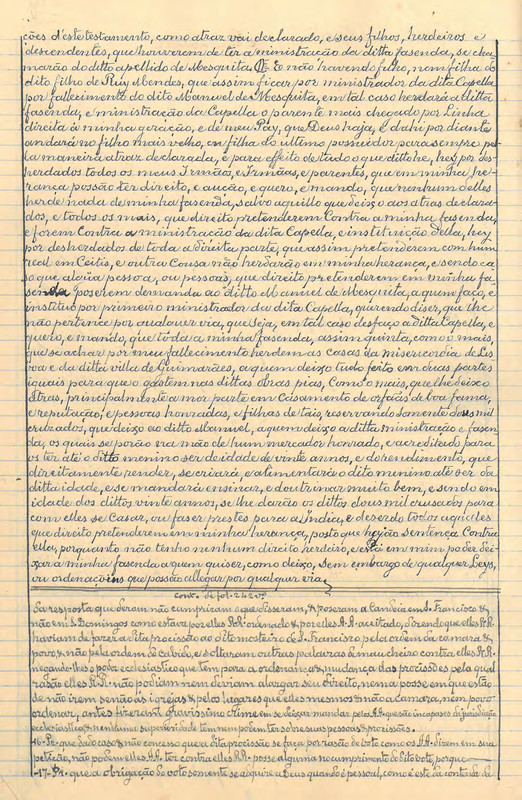 ções d'este testamento, como atraz vai declarado, e seus filhos, herdeiros e
descendentes, que houverem de ter a ministração da ditta fasenda, se cha
marão do ditto appellido de Mesquita. E não havendo filho, nem filha do
dito filho de Ruy Mendes, que assim ficar por ministrador da dita Capella
por fallecimento do dito Manuel de Mesquita, em tal caso herdará a ditta
fasenda, e ministração da Capella o parente mais chegado por Linha
direita á minha geração, e de meu Pay, que Deus haja, e dahi por diante
andará no filho mais velho, ou filha do ultimo possuidor para sempre pe
la maneira atraz declarada, e para effeito de tudo o que ditto he, hey por des
herdados todos os meus Irmãos, e Irmãas, e parentes, que em minha he
rança possão ter direito, e aução, e quero, e mando, que nenhum d'elles
herde nada de minha fasenda, salvo aquillo que deixo aos atras declara
dos, e todos os mais, que direito pretenderem Contra a minha fasenda,
e forem Contra a ministração da dita Capella, e instituição della, hey
por desherdados de toda a direita parte, que assim pretenderem com hum
real em Ceitis, e outra Cousa não herdarão em minha herança, e sendo ca
so que alguã pessoa, ou pessoas, que direito pretenderem em minha fa
senda poserem demanda ao ditto Manuel de Mesquita, a quem faço, e
instituo por primeiro ministrador da dita Capella, querendo diser, que lhe
não pertence por qualquer via, que seja, em tal caso desfaço a ditta Capella, e
quero, e mando, que toda a minha fasenda, assim quinta, como o mais,
que se achar por meu fallecimento herdem as casas da misericordia de Lis
boa e da ditta villa de Guimarães, a quem deixo tudo feito em duas partes
iguais para que o gastem nas dittas obras pias, Como o mais, que lhe deixo
atras, principalmente a mor parte em Casamento de orfaãs de boa fama,
e reputação, e pessoas honradas, e filhas de tais, reservando somente dous mil
cruzados, que deixo ao ditto Manuel, a quem deixo a ditta ministração e fasen
da, os quais se porão na mão de hum mercador honrado, e acreditado para
os ter até o ditto menino ser de idade de vinte annos, e do rendimento, que
direitamente render, se criará, e alimentará o dito menino até ser da
ditta idade, e se mandará ensinar, e doutrinar muito bem, e sendo em
idade dos dittos vinte annos, se lhe darão os dittos dous mil crusados para
com elles se Casar, ou faser prestes para a India, e deserdo todos aquelles
que direito pretenderem em minha herança, posto que hajão sentença Contra
ella, porquanto não tenho nenhum direito herdeiro, e está em mim poder dei
xar a minha fasenda a quem quiser, como deixo, Sem embargo de quaesquer Leys,
ou ordenações que possão allegar por qualquer via.
cont. de fol. 242 v.º
da resposta que deram não cumpriram o que disseram, & poseram a bandeira em S. Francisco &
não em S. Domingos como estava por elles RR. ordenado & por elles AA. aceitado, dizendo que elles RR.
haviam de fazer a dita procissão ao dito mosteiro de S. Francisco pela ordem da camara &
povo & não pela ordem do Cabido, e soltaram outras palavras de mau cheiro contra elles RR.
negando-lhes o poder ecclesiastico que tem para a ordenança & mudança das procissões pela qual
rasão elles RR. não podiam nem deviam alargar seu direito, nem a posse em que estão
de não irem senão ás igrejas & pelos lugares que elles mesmos & não a Camara, nem povo
ordenar, antes fizeram gravissimo crime em se deixar mandar pelos AA. que são incapases da jurisdição
ecclesiastica & nenhuma superioridade tem nem podem ter sobre suas pessoas & procissões.
16. P. que dado caso & não concesso que a dita procissão se faça por rasão de voto como os AA. dizem em sua
petição, não podem elles AA. ter contra elles RR. posse alguma no cumprimento do dito voto, porque
17. P. que a obrigação do voto somente se adquire a Deus quando é pessoal, como é este da contenda de